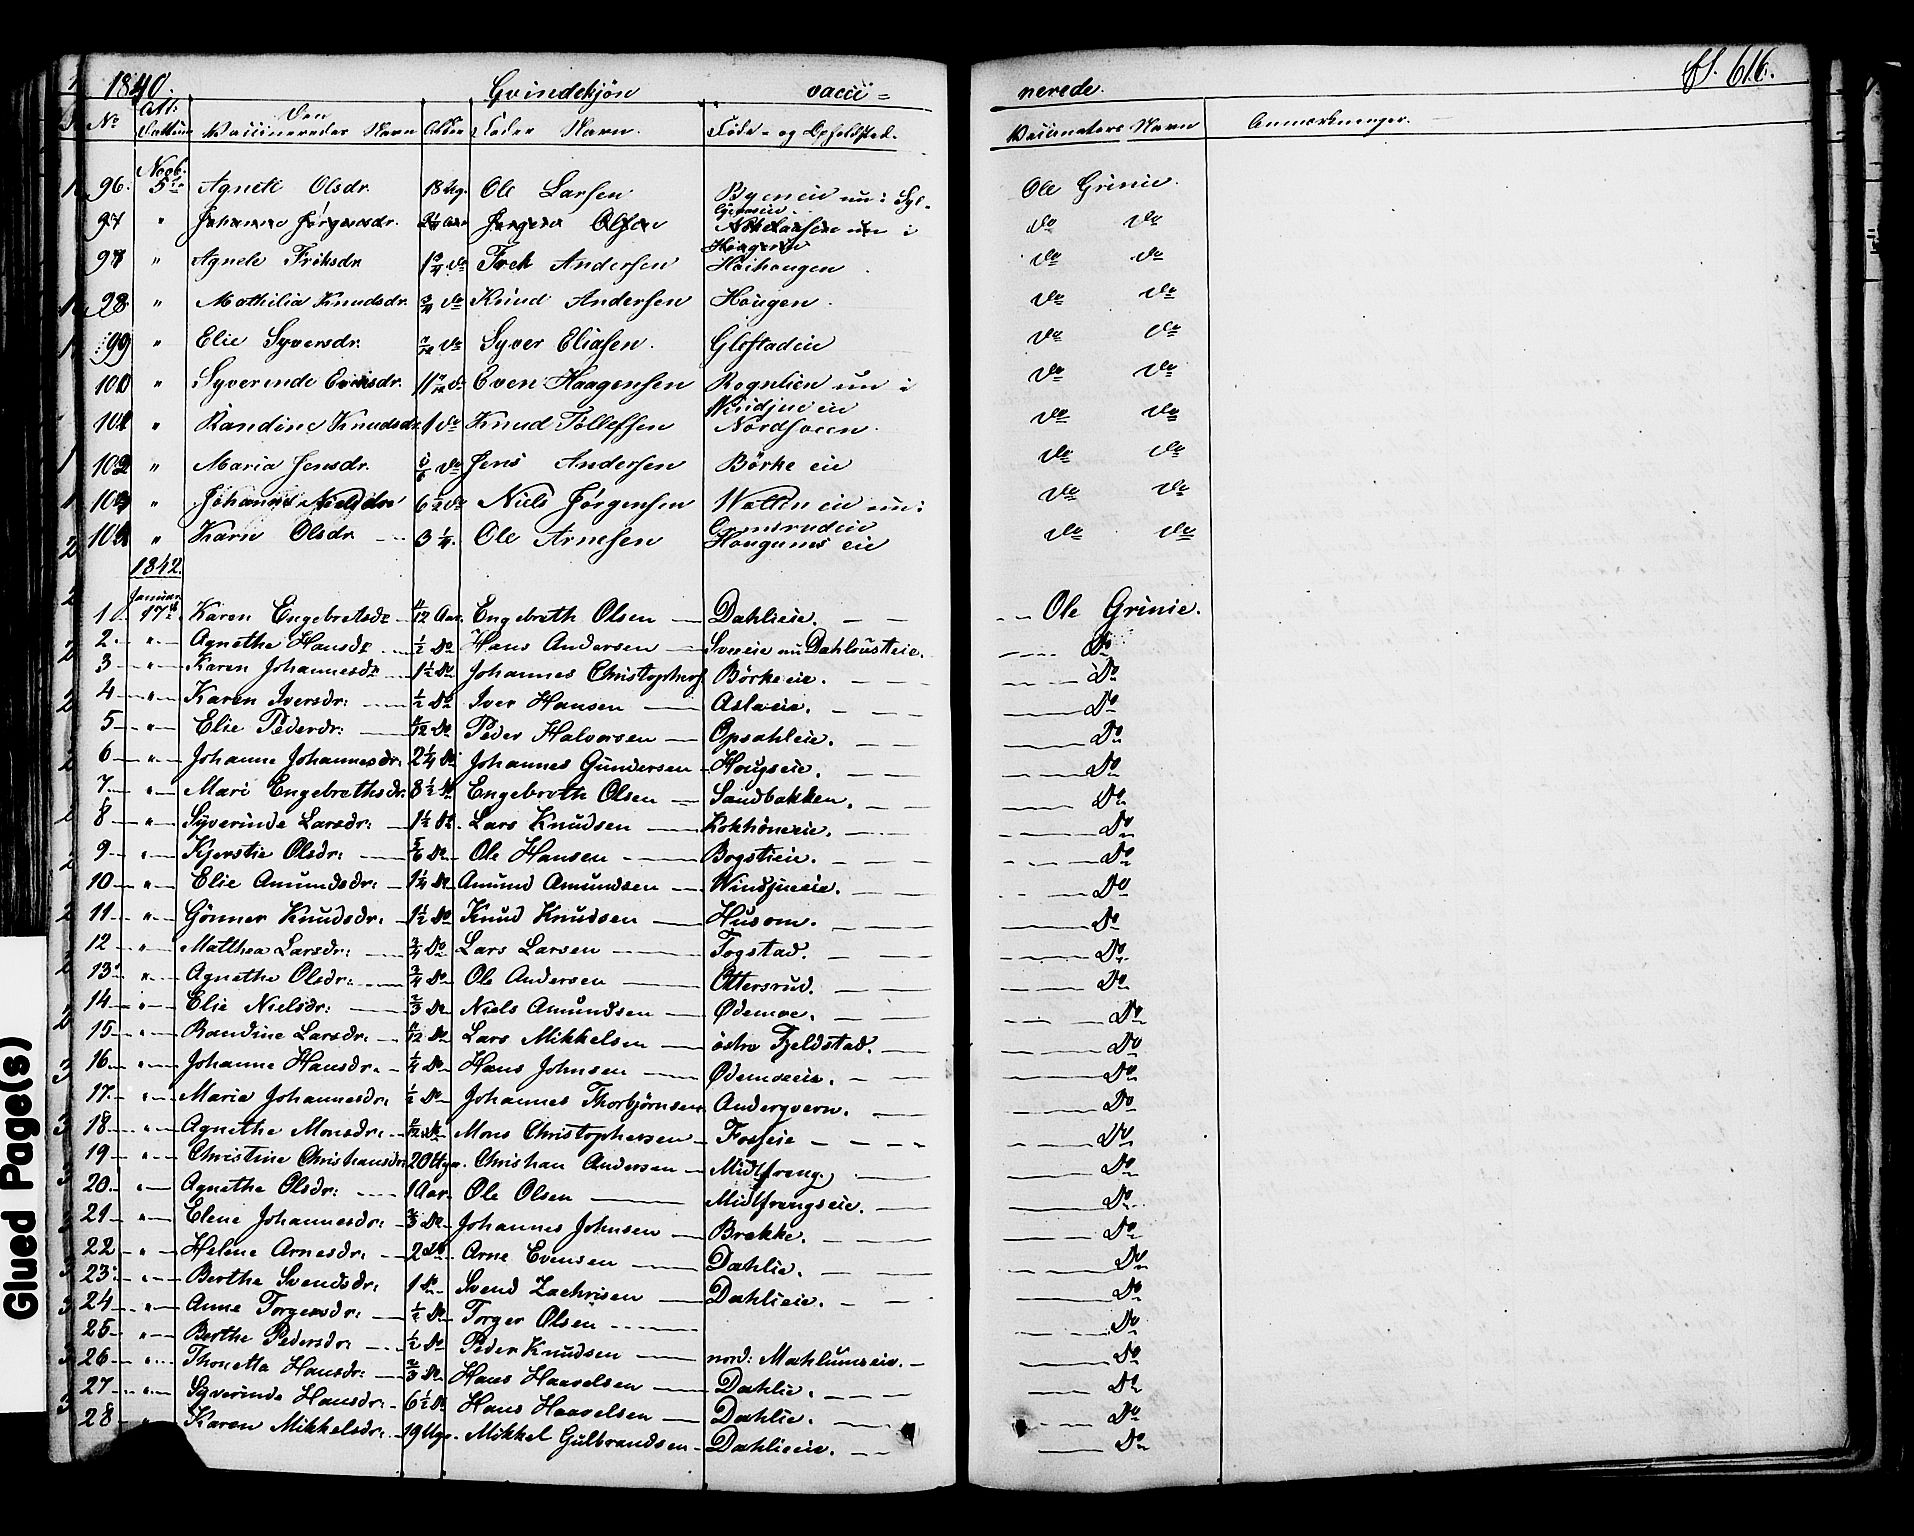 1840. Qvindekjön vacci= nerede. fl. 616.
No Datum Den Vaccineredes Navn Alder Fader Navn. Föde- og Opholdsted. Vaccinators Navn Anmærkninger.
Novb.
96. 5te Agnete Olsdr. 18 Ug. Ole Larsen Byeneie nu i Ole Grinie.
97 " Johanne Jörgensdr. Jörgen Olsen nu i Do Do
98 " Agnete Do Andersen Hoihaugen Do Do
" Mathilia Knudsdr. Do Knud Andersen Haugen. Do Do
99 " Elie Syversdr. Do Syver Eliasen. Glostadeie Do Do
100 " Syverinde Evensdr. Even Haagensen Rognlien nu i Do Do
Windjueeie
101 " Randine Knudsdr 1 Do Knud Tollefsen Do Do
102 " Maria Jensdr. Do Jens Andersen Börke eie Do Do
103 " Johanne Nielsdr. 6 1/2 Do Niels Jörgensen nu i Do Do
104 " Karie Olsdr 3 1/4. Ole Arnesen Haugnes eie Do Do
1842.
Januar
1. 17de Karen Engebretsdr 11/12 Aar. Engebreth Olsen Dahlieie. Ole Grinie.
2. " Agnethe Hansdr 1/2 Do Hans Andersen Sveeeie nu Dahlousteie. Do
3 " Karen Johannesdr 1 1/2 Do Johannes Christophers Börkeeie. Do
4 " Karen Iversdr: 1/2 Do Iver Hansen Aslaeie. Do
5 " Elie Pederdr: Do Peder Halvorsen Opsahleie. Do
6 " Johanne Johannesdr: 2 1/4 Do Johannes Gundersen Hougseie. Do
7 " Mari Engebrethsdr. 3 1/2 Do Engebreth Olsen Sandbakken. Do
8 " Syverinde Larsdr: 1 1/2 Do. Lars Knudsen Kokhöneeie. Do
9 " Kjerstie Olsdr: 5/6 Do Ole Hansen Bogstieie. Do
10 " Elie Amundsdr: 1 1/4 Do Amund Amundsen Windjueeie. Do
11 " Gönner Knudsdr: 1 1/2 Do Knud Knudsen Husom. Do
12 " Matthea Larsdr: 3/4 Do Lars Larsen Togstad. Do
13 " Agnethe Olsdr: 3/4 Do Ole Andersen Ottersrud. Do
14 " Elie Nielsdr: 2/3 Do Niels Amundsen Ødemoe. Do
15 " Randine Larsdr: Do Lars Mikkelsen östre Fjeldstad. Do
16 " Johanne Hansdr: 1/4 Do Hans Johnsen Ødemoeeie. Do
17. " Marie Johannesdr: 1/2 Do Johannes Thorbjörnsen Andergvern. Do
18 " Agnethe Monsdr: Do Mons Christophersen Fosseie Do
19 " Christine Christiansdr: 20 Uger. Christian Andersen Midtfreng. Do
20 " Agnethe Olsdr: 1 Aar. Ole Olsen Midtfrengseie. Do
21 " Elene Johannesdr: Do Johannes Johnsen Brække. Do
22 " Helene Arnesdr: 2 Do Arne Evensen Dahlie. Do
23. " Berthe Svendsdr: 1 Do Svend Zachrisen Dahlieie. Do
24 " Anne Torgersdr: 1/2 Do Torger Olsen Do
25 " Berthe Pedersdr: 1/2 Do Peder Knudsen nord: Mæhlumseie. Do
26 " Thonetta Hansdr: 2/3 Do Hans Haavelsen Dahlie. Do
27 " Syverinde Hansdr: 6 1/2 Do Hans Haavelsen Dahlie. Do
28 " Karen Mikkelsdr: 19 Uger. Mikkel Gulbrandsen Dahlieeie. Do
Glued Page(s)